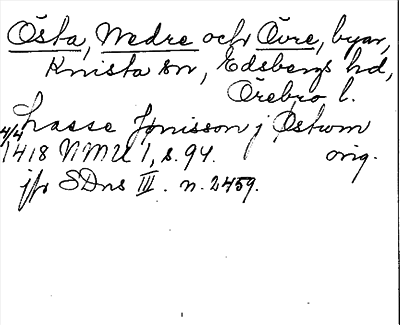 Östa, Nedre och Övre, byar,
Knista sn, Edsbergs hd,
Örebro l.
Lasse Jønisson j Østom
4/4
1418 NMU 1, s. 94. orig.
jfr SDns III. n. 2459.